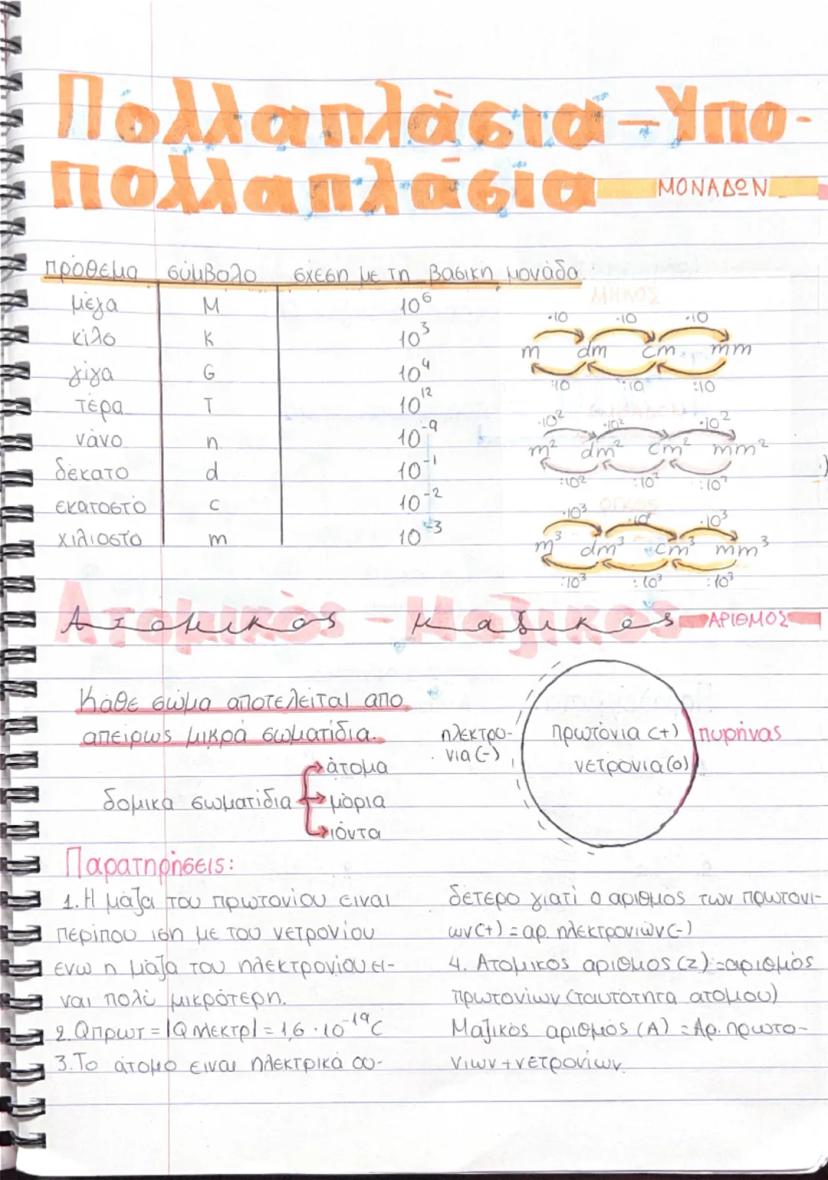 Πολλαπλάσια - Υπο-
πολλαπλάσια ΜΟΝΑΔΩΝ
πρόθεμα σύμβολο σχέση με τη βασική μονάδα
μέγα M 10⁶
κιλο K 10³
γίγα G 10⁴
τέρα T 10¹²
νάνο n 10⁻⁹
δέκατο d 10⁻¹
εκατοστό c 10⁻²
χιλιοστό m 10⁻³
ΜΗΚΟΣ
·10 ·10 ·10
m dm cm mm
:10 :10 :10
·10² ·10² ·10²
m² dm² cm² mm²
:10² :10² :10²
ΟΓΚΟΣ
·10³ ·10³ ·10³
m³ dm³ cm³ mm³
:10³ :10³ :10³
Ατομικός - Μαζικός ΑΡΙΘΜΟΣ
Κάθε σώμα αποτελείται απο
απείρως μικρά σωματίδια.
δομικα σωματίδια
άτομα
μόρια
ιόντα
ηλεκτρο-
νια (-)
πρωτόνια (+)
νετρονια (0)
πυρήνας
Παρατηρήσεις:
1. Η μάζα του πρωτονίου ειναι
περίπου ιση με του νετρονίου
ενω η μάζα του ηλεκτρονίου ει-
ναι πολύ μικρότερη.
2. Qπρωτ = |Qηλεκτρ| = 1,6 · 10⁻¹⁹ C
3. Το άτομο ειναι ηλεκτρικά ου-
δέτερο γιατί ο αριθμός των πρωτονι-
ων (+) = αρ. ηλεκτρονιών (-)
4. Ατομικός αριθμος (Z) = αριθμός
πρωτονίων (ταυτότητα ατόμου)
Μαζικός αριθμός (A) = Αρ. πρωτο-
νιων + νετρονίων.